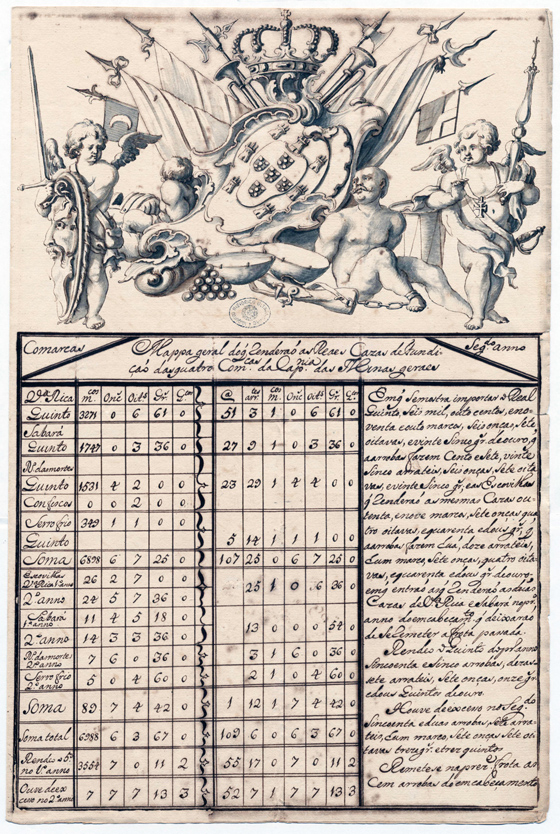 Comarcas
Mappa geral do q̃ Renderaõ as Reaes Cazas de fundi-
çaõ das quatro Com.as da Cap.nia das Minas geraes
Seg.do anno
V.a Rica | m. | onc | oit.s | Gr. | @ | ar. | m. | Onc | oit.s | Gr. | q.os
Quinto | 3271 | 0 | 6 | 61 | 0 | 51 | 3 | 1 | 0 | 6 | 61 | 0
Sabará
Quinto | 1747 | 0 | 3 | 36 | 0 | 27 | 9 | 1 | 0 | 3 | 36 | 0
R.o das mortes
Quinto | 1531 | 4 | 2 | 0 | 0 | 23 | 29 | 1 | 4 | 4 | 0 | 0
Confiscos | 0 | 0 | 2 | 0 | 0
Serro frio | 349 | 1 | 1 | 0 | 0
Quinto | 5 | 14 | 1 | 1 | 1 | 0 | 0
Soma | 6898 | 6 | 7 | 25 | 0 | 107 | 25 | 0 | 6 | 7 | 25 | 0
Escovilha
V.a Rica 1.o anno | 26 | 2 | 7 | 0 | 0
2.o anno | 24 | 5 | 7 | 36 | 0 | 25 | 1 | 0 | 6 | 36 | 0
Sabará
1.o anno | 11 | 4 | 5 | 18 | 0
2.o anno | 14 | 3 | 3 | 36 | 0 | 13 | 0 | 0 | 0 | 54 | 0
R.o das mortes
2.o anno | 7 | 6 | 0 | 36 | 3 | 1 | 6 | 0 | 36 | 0
Serro frio
2.o anno | 5 | 0 | 4 | 60 | 0 | 2 | 1 | 0 | 4 | 60 | 0
Soma | 89 | 7 | 4 | 42 | 0 | 1 | 12 | 1 | 7 | 4 | 42 | 0
Soma total | 6988 | 6 | 3 | 67 | 0 | 109 | 6 | 0 | 6 | 3 | 67 | 0
Rendeo o 5.o
no 1.o anno | 3554 | 7 | 0 | 11 | 2 | 55 | 17 | 0 | 7 | 0 | 11 | 2
Ouve de ex
ceso no 2.o anno | 7 | 7 | 7 | 13 | 3 | 52 | 7 | 1 | 7 | 7 | 13 | 3
importas o Real
Quinto, seis mil, oito centos, eno-
venta eoito marcos, seis onças, sete
oitavas, evinte sinco gr.s de ouro, q̃
aarrobas fazem Cento esete, vinte
sinco arrateis, seis onças, sete oita
vas, evinte sinco gr.s, eas Escovilhas
q̃ Renderaõ as mesmas Cazas oi-
tenta, enove marcos, sete onças, qua
tro oitavas, equarenta edous gr.s, q̃
aarrobas fazem hũa, doze arrateis,
hum marco, sete onças, quatro oita-
vas, equarenta edous gr.s de ouro,
Cazas de V.a Rica e Sabara no pr.o
anno
de se Remeter a frota passada.
Rendeo o Quinto do pr.o anno
Sincoenta e sinco arrobas, dezas-
sete arrateis, sete onças, onze gr.s
edous Quintos de ouro.
Houve de exceso no Seg.do
Sincoenta eduas arrobas, sete arra-
teis, hum marco, sete onças, sete oi-
tavas treze gr.s etrez quintos
Remetese na prez.te frota as
Cem arrobas do emcabeçamento